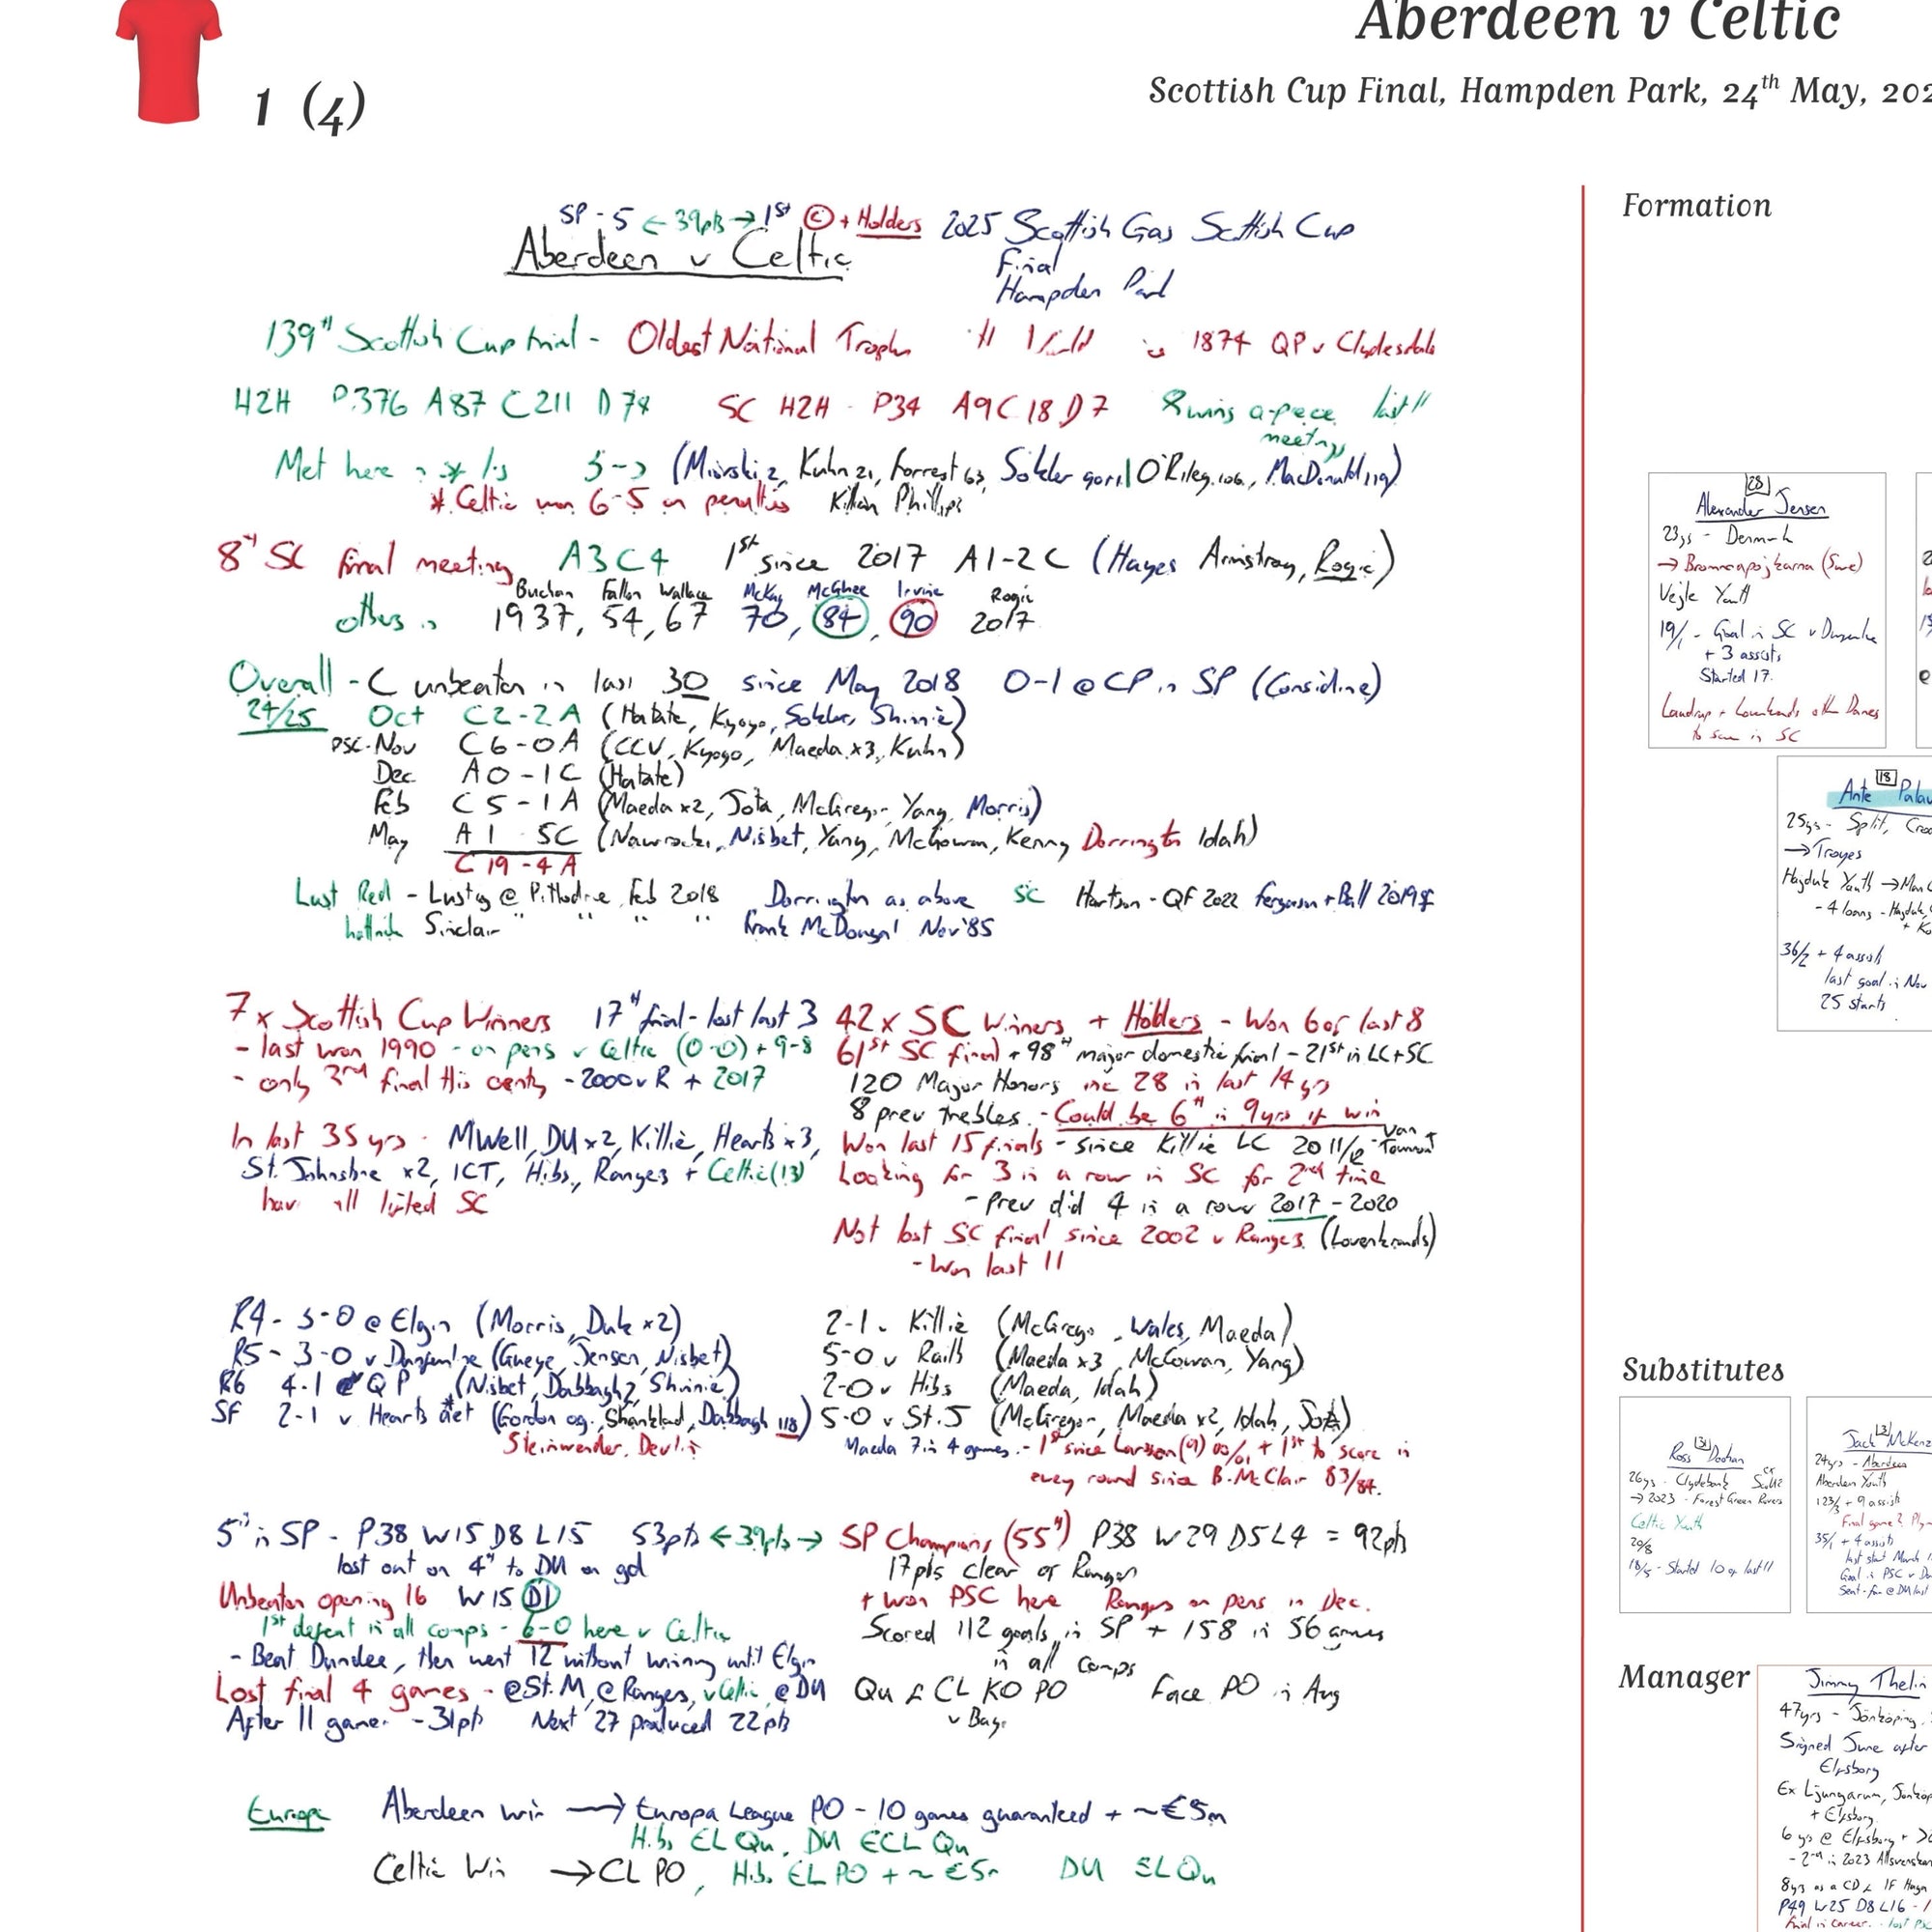 Aberdeen v Celtic
1 (4)
Scottish Cup Final, Hampden Park, 24th May, 202
SP - 5 ← 39pts → 1st © + Holders
Aberdeen v Celtic
2025 Scottish Gas Scottish Cup
Final
Hampden Park
139th Scottish Cup Final - Oldest National Trophy 1874 QP v Clydesdale
H2H P376 A87 C211 D78 SC H2H - P34 A9 C18 D7 8 wins a-piece last
meetings
Met here (Miovski 2, Kuhn 21, Forrest 63, Sokler 90+1 O'Riley 106, MacDonald 119)
* Celtic won 6-5 on penalties Killian Phillips
8th SC final meeting A3 C4 1st since 2017 A1-2C (Hayes Armstrong, Rogic)
Buchan Fallon Wallace McKay McGhee Irvine Rogic
others 1937, 54, 67 70, 84, 90 2017
Overall - C unbeaten in last 30 since May 2018 0-1 @ CP in SP (Considine)
24/25 Oct C2-2A (Hatate, Kyogo, Sokler, Shinnie)
PSC-Nov C6-0A (CCV, Kyogo, Maeda x3, Kuhn)
Dec A0-1C (Hatate)
Feb C5-1A (Maeda x2, Jota, McGregor, Yang, Morris)
May A1 5C (Nawrocki, Nisbet, Yang, McCowan, Kenny Dorrington Idah)
C19-4A
Last Red - Lustig @ Pittodrie Feb 2018 Dorrington as above SC Hartson - QF 2022 Ferguson + Ball 2019 SF
hattrick Sinclair " " " " Frank McDougal Nov'85
7 x Scottish Cup Winners 17th final - lost last 3
- last won 1990 - on pens v Celtic (0-0) + 9-8
- only 3rd final this century - 2000 v R + 2017
In last 35 yrs - MWell, DU x2, Killie, Hearts x3,
St. Johnstone x2, ICT, Hibs, Rangers + Celtic (13)
have all lifted SC
42 x SC Winners + Holders - Won 6 of last 8
61st SC final + 98th major domestic final - 21st in LC + SC
120 Major Honors inc 28 in last 14 yrs
8 prev trebles - Could be 6th in 9yrs if win
Won last 15 finals - since Killie LC 2011/12 - Van Tornout
Looking for 3 in a row in SC for 2nd time
- Prev did 4 in a row 2017 - 2020
Not lost SC final since 2002 v Rangers (Lovenkrands)
- Won last 11
R4 - 3-0 @ Elgin (Morris, Duk x2)
R5 - 3-0 v Dunfermline (Gueye, Jensen, Nisbet)
R6 4-1 v QP (Nisbet, Dabbagh 2, Shinnie)
SF 2-1 v Hearts aet (Gordon og, Shankland, Dabbagh 118)
Steinwender, Devlin
2-1 v Killie (McGregor, Wales, Maeda)
5-0 v Raith (Maeda x3, McCowan, Yang)
2-0 v Hibs (Maeda, Idah)
5-0 v St. J (McGregor, Maeda x2, Idah, Jota)
Maeda 7 in 4 games - 1st since Larsson (9) 00/01 + 1st to score in
every round since B. McClair 83/84.
5th in SP - P38 W15 D8 L15 53pts ← 39pts →
lost out on 4th to DU on gd
Unbeaten opening 16 W15 D1
1st defeat in all comps - 6-0 here v Celtic
- Beat Dundee, then went 12 without winning until Elgin
Lost final 4 games - @ St.M, @ Rangers, v Celtic, @ DU
After 11 games - 31pts Next 27 produced 22pts
SP Champions (55th) P38 W29 D5 L4 = 92pts
17pts clear of Rangers
+ won PSC here Rangers on pens in Dec.
Scored 112 goals in SP + 158 in 56 games
in all comps
Qu f CL KO PO Face PO in Aug
v Bay.
Europe Aberdeen win → Europa League PO - 10 games guaranteed + ~€5m
Hibs EL Qu, DU ECL Qu
Celtic Win → CL PO, Hibs EL PO + ~€5m DU ELQu
Formation
28
Alexander Jensen
23yrs - Denmark
→ Brommapojkarna (Swe)
Vejle Youth
19/1 - Goal in SC v Dunfermline
+ 3 assists
Started 17.
Laudrup + Lovenkrands other Danes
to score in SC
18
Ante Palav
25yrs - Split, Croa
→ Troyes
Hajduk Youth → Man C
- 4 loans - Hajduk,
+ Ko
36/2 + 4 assists
last goal in Nov
25 starts
Substitutes
31
Ross Doohan
26yrs - Clydebank
→ 2023 - Forest Green Rovers
Celtic Youth
20/8
18/5 - Started 10 of last 11
Jack McKenz
24yrs - Aberdeen
Aberdeen Youth
123/3 + 9 assists
Final game?
35/1 + 4 assists
last start March
Goal in PSC v Du
Sent-for @ DU last
Manager
Jimmy Thelin
47yrs - Jönköping,
Signed June after
Elfsborg
Ex Ljungarum, Jonkop
+ Elfsborg
6 yrs @ Elfsborg +
- 2nd in 2023 Allsvenskan
8yrs as a CD f IF Haga
P49 W25 D8 L16
Final in career